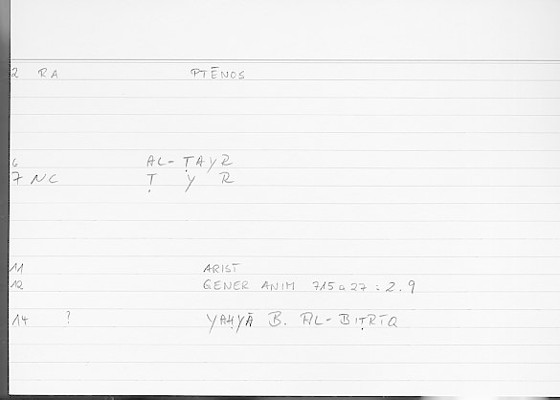 2 RA PTĒNOS
6 AL-ṬAYR
7 NC Ṭ Y R
11 ARIST
12 GENER ANIM 715a27 : 2.9
14 ? YAḤYĀ B. AL-BIṬRĪQ